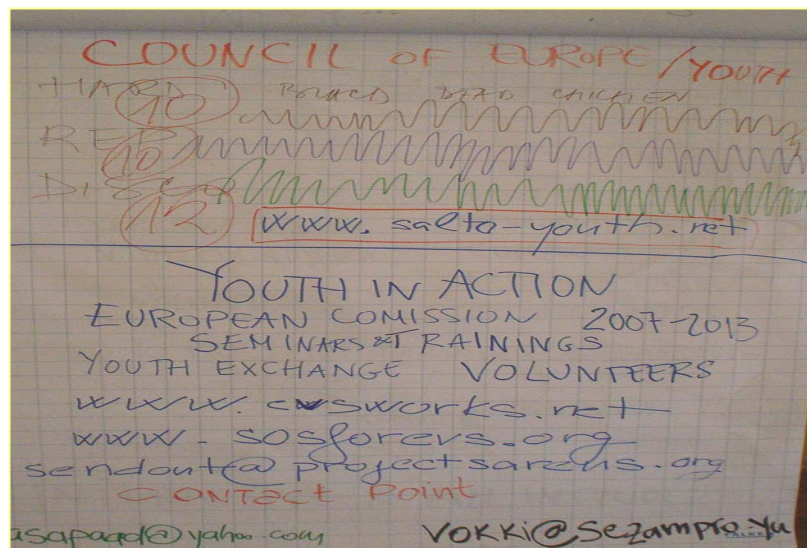 COUNCIL OF EUROPE/YOUTH
HARD 10 BOILED DEAD CHICKEN
RED 10
12
www.salto-youth.net
YOUTH IN ACTION
EUROPEAN COMISSION 2007-2013
SEMINARS & TRAININGS
YOUTH EXCHANGE VOLUNTEERS
www.evsworks.net
www.sosforevs.org
sendout@projectsarens.org
CONTACT POINT
asapaad@yahoo.com VOKKi@Sezampro.yu